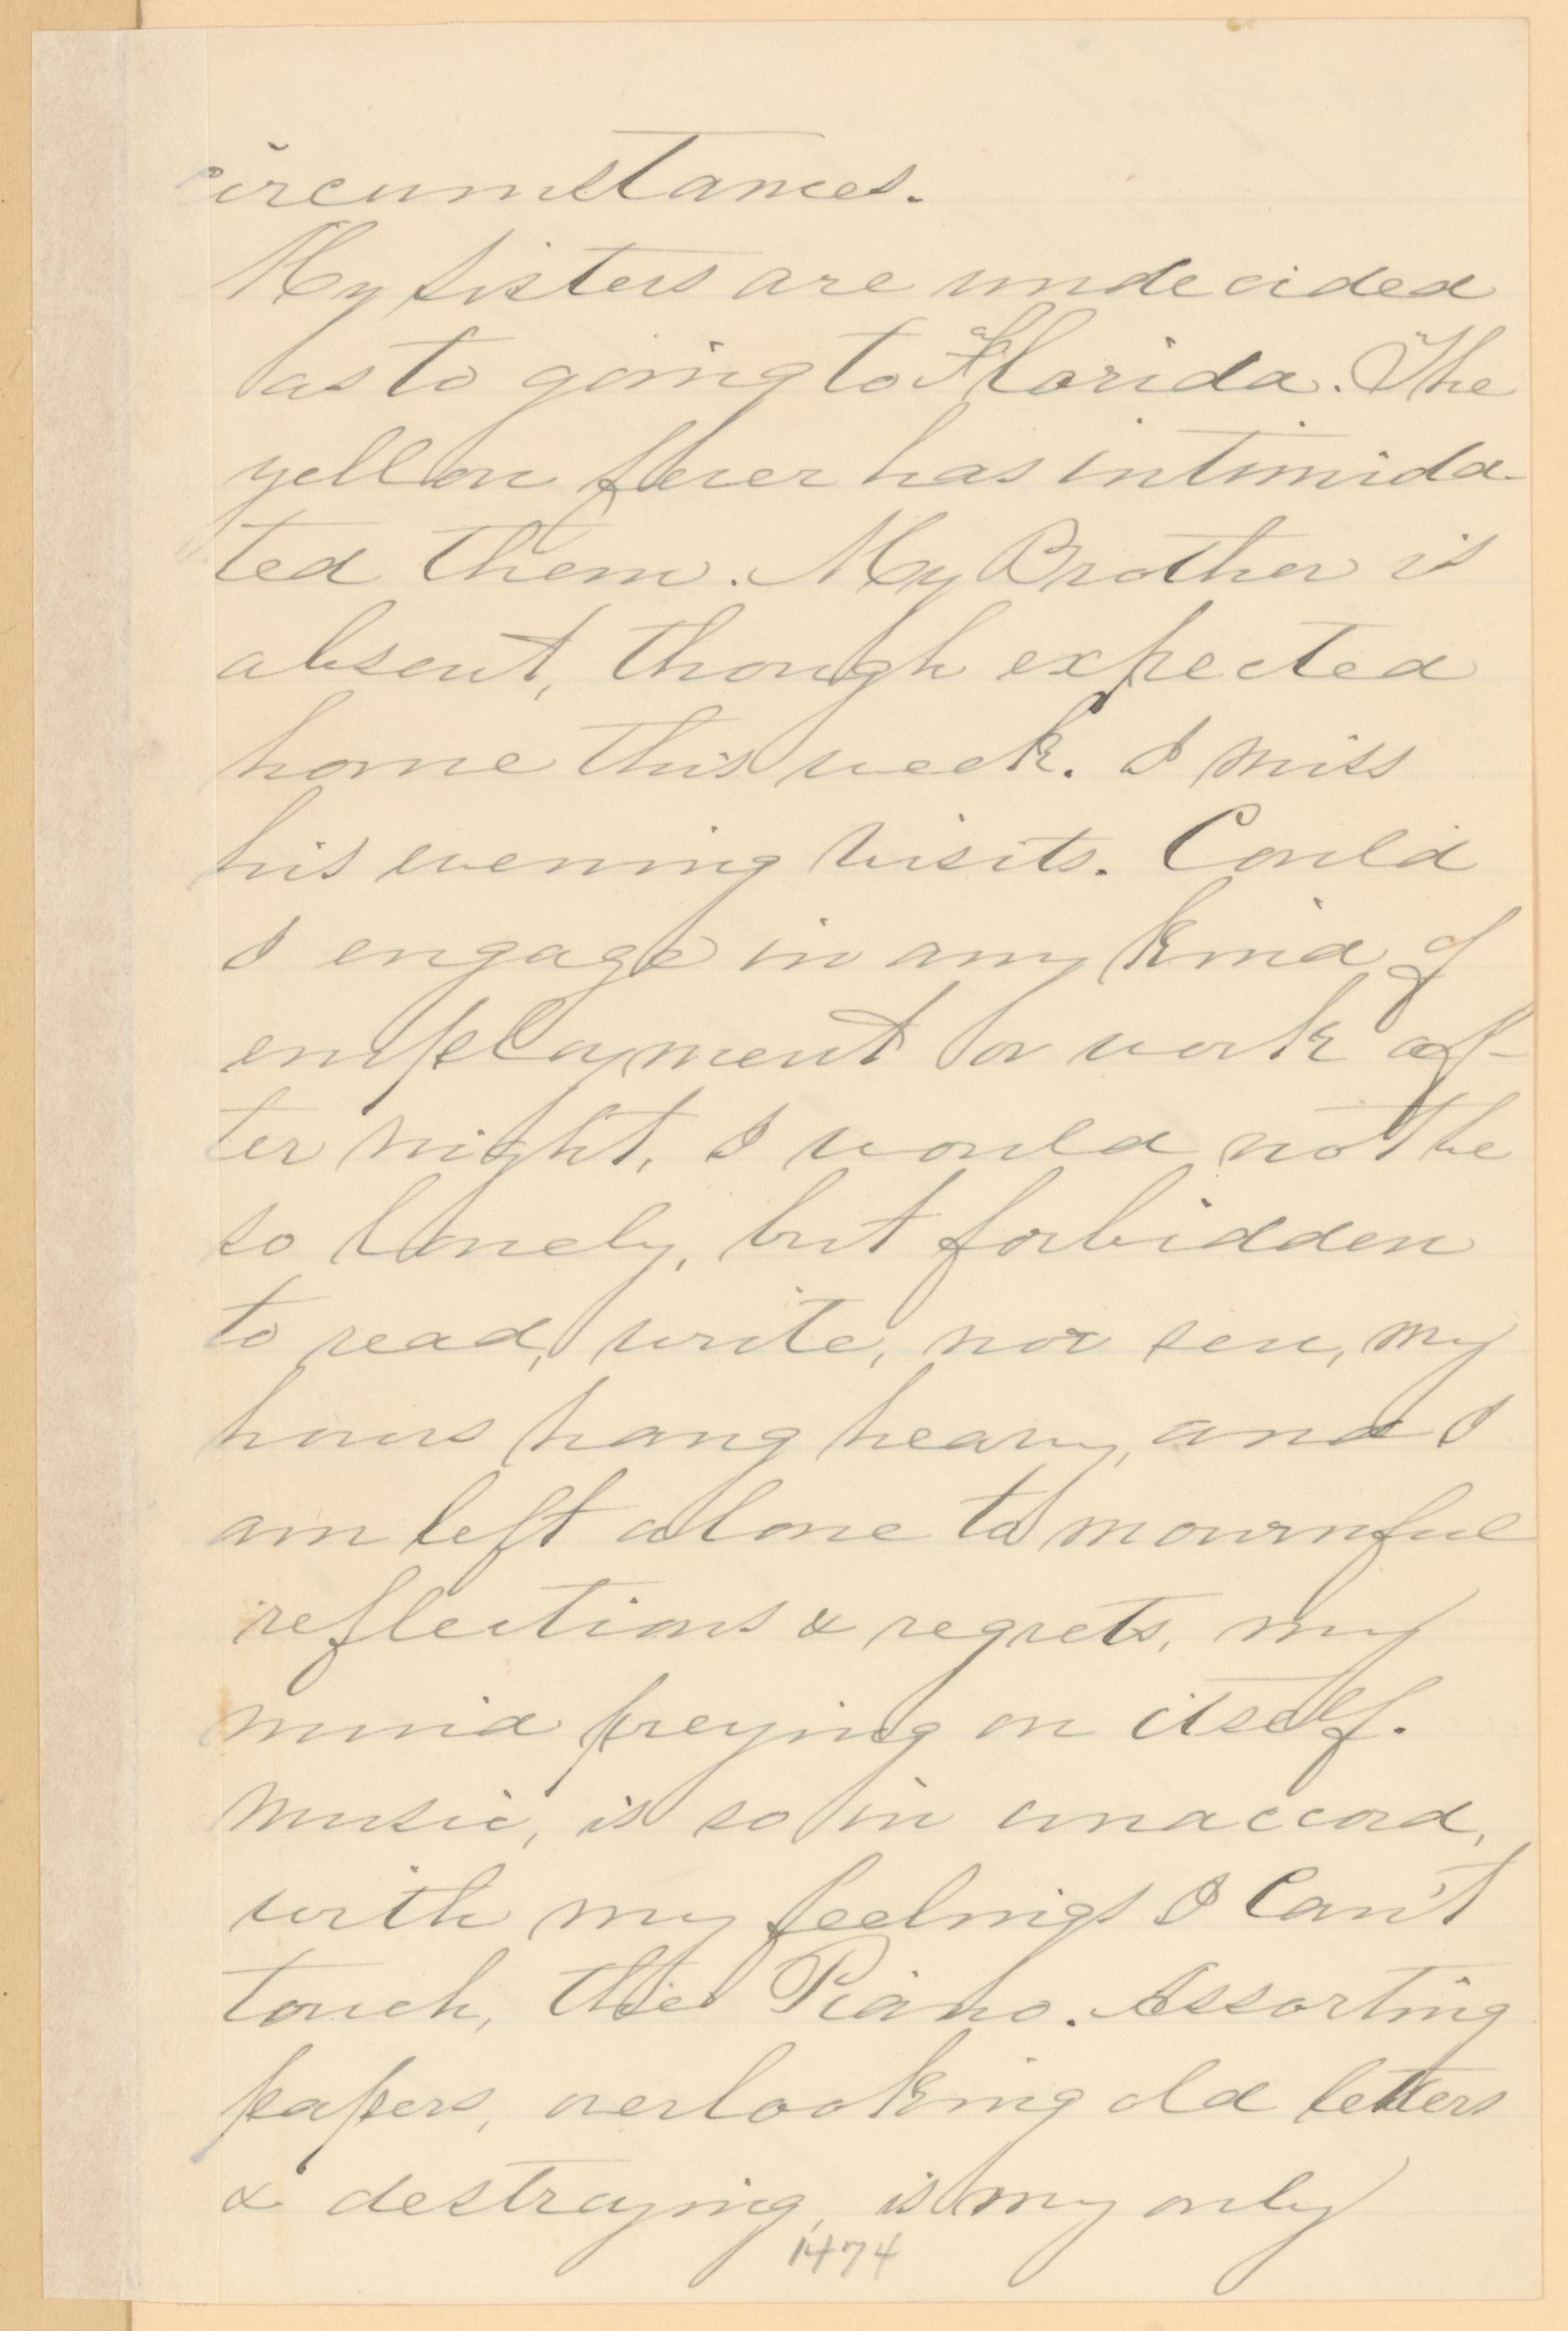 circumstances.
My sisters are undecided
as to going to Florida. The
yellow fever has intimida-
ted them. My Brother is
absent, though expected
home this week. I miss
his evening visits. Could
I engage in any kind of
employment or work af-
ter night, I would not be
so lonely, but forbidden
to read, write, nor sew, my
hours hang heavy, and I
am left alone to mournful
reflections & regrets, my
mind preying on itself.
Music, is so in unaccord,
with my feelings I can't
touch, the Piano. Assorting
papers, overlooking old letters
& destroying, is my only
1474